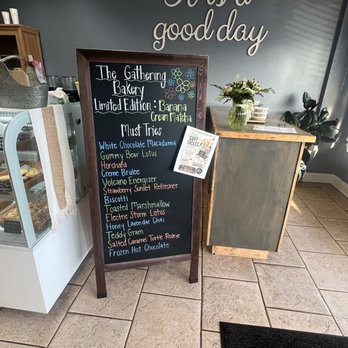 good day
The Gathering
Bakery
Limited Edition: Banana
Cream Matcha
Must Tries
White Chocolate Macadamia
Gummy Bear Lotus
Horchata
Creme Brulee
Volcano Energizer
Strawberry Sunset Refresher
Biscotti
Toasted Marshmallow
Electric Storm Lotus
Honey Lavender
Teddy Gram
Salted Caramel Turtle Redeye
Frozen Hot Chocolate